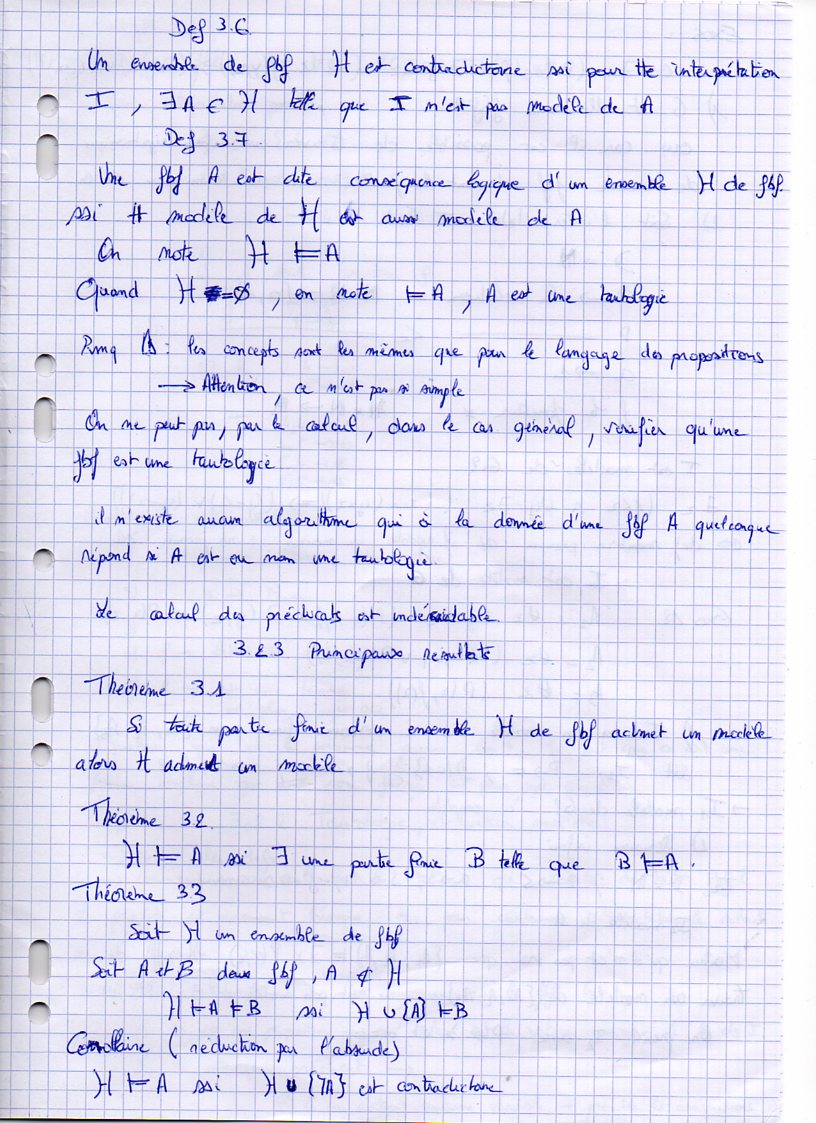 Def 3.6.
Un ensemble de fbf H est contradictoire ssi pour tte interprétation
I, ∃A ∈ H telle que I n'est pas modèle de A
Def 3.7
Une fbf A est dite conséquence logique d'un ensemble H de fbf.
ssi tt modèle de H est aussi modèle de A
On note H ⊨ A
Quand H = ∅, on note ⊨ A, A est une tautologie
Rmq : les concepts sont les mêmes que pour le langage des propositions
→ Attention, ce n'est pas si simple
On ne peut pas, par le calcul, dans le cas général, vérifier qu'une
fbf est une tautologie
il n'existe aucun algorithme qui à la donnée d'une fbf A quelconque
répond si A est ou non une tautologie.
Le calcul des prédicats est indécidable.
3.2.3 Principaux resultats
Théorème 3.1
Si toute partie finie d'un ensemble H de fbf admet un modèle
alors H admet un modèle
Théorème 3.2.
H ⊨ A ssi ∃ une partie finie B telle que B ⊨ A.
Théorème 3.3
Soit H un ensemble de fbf
Soit A et B deux fbf, A ∉ H
H ⊨ A ⊨ B ssi H ∪ {A} ⊨ B
Corollaire (réduction par l'absurde)
H ⊨ A ssi H ∪ {¬A} est contradictoire